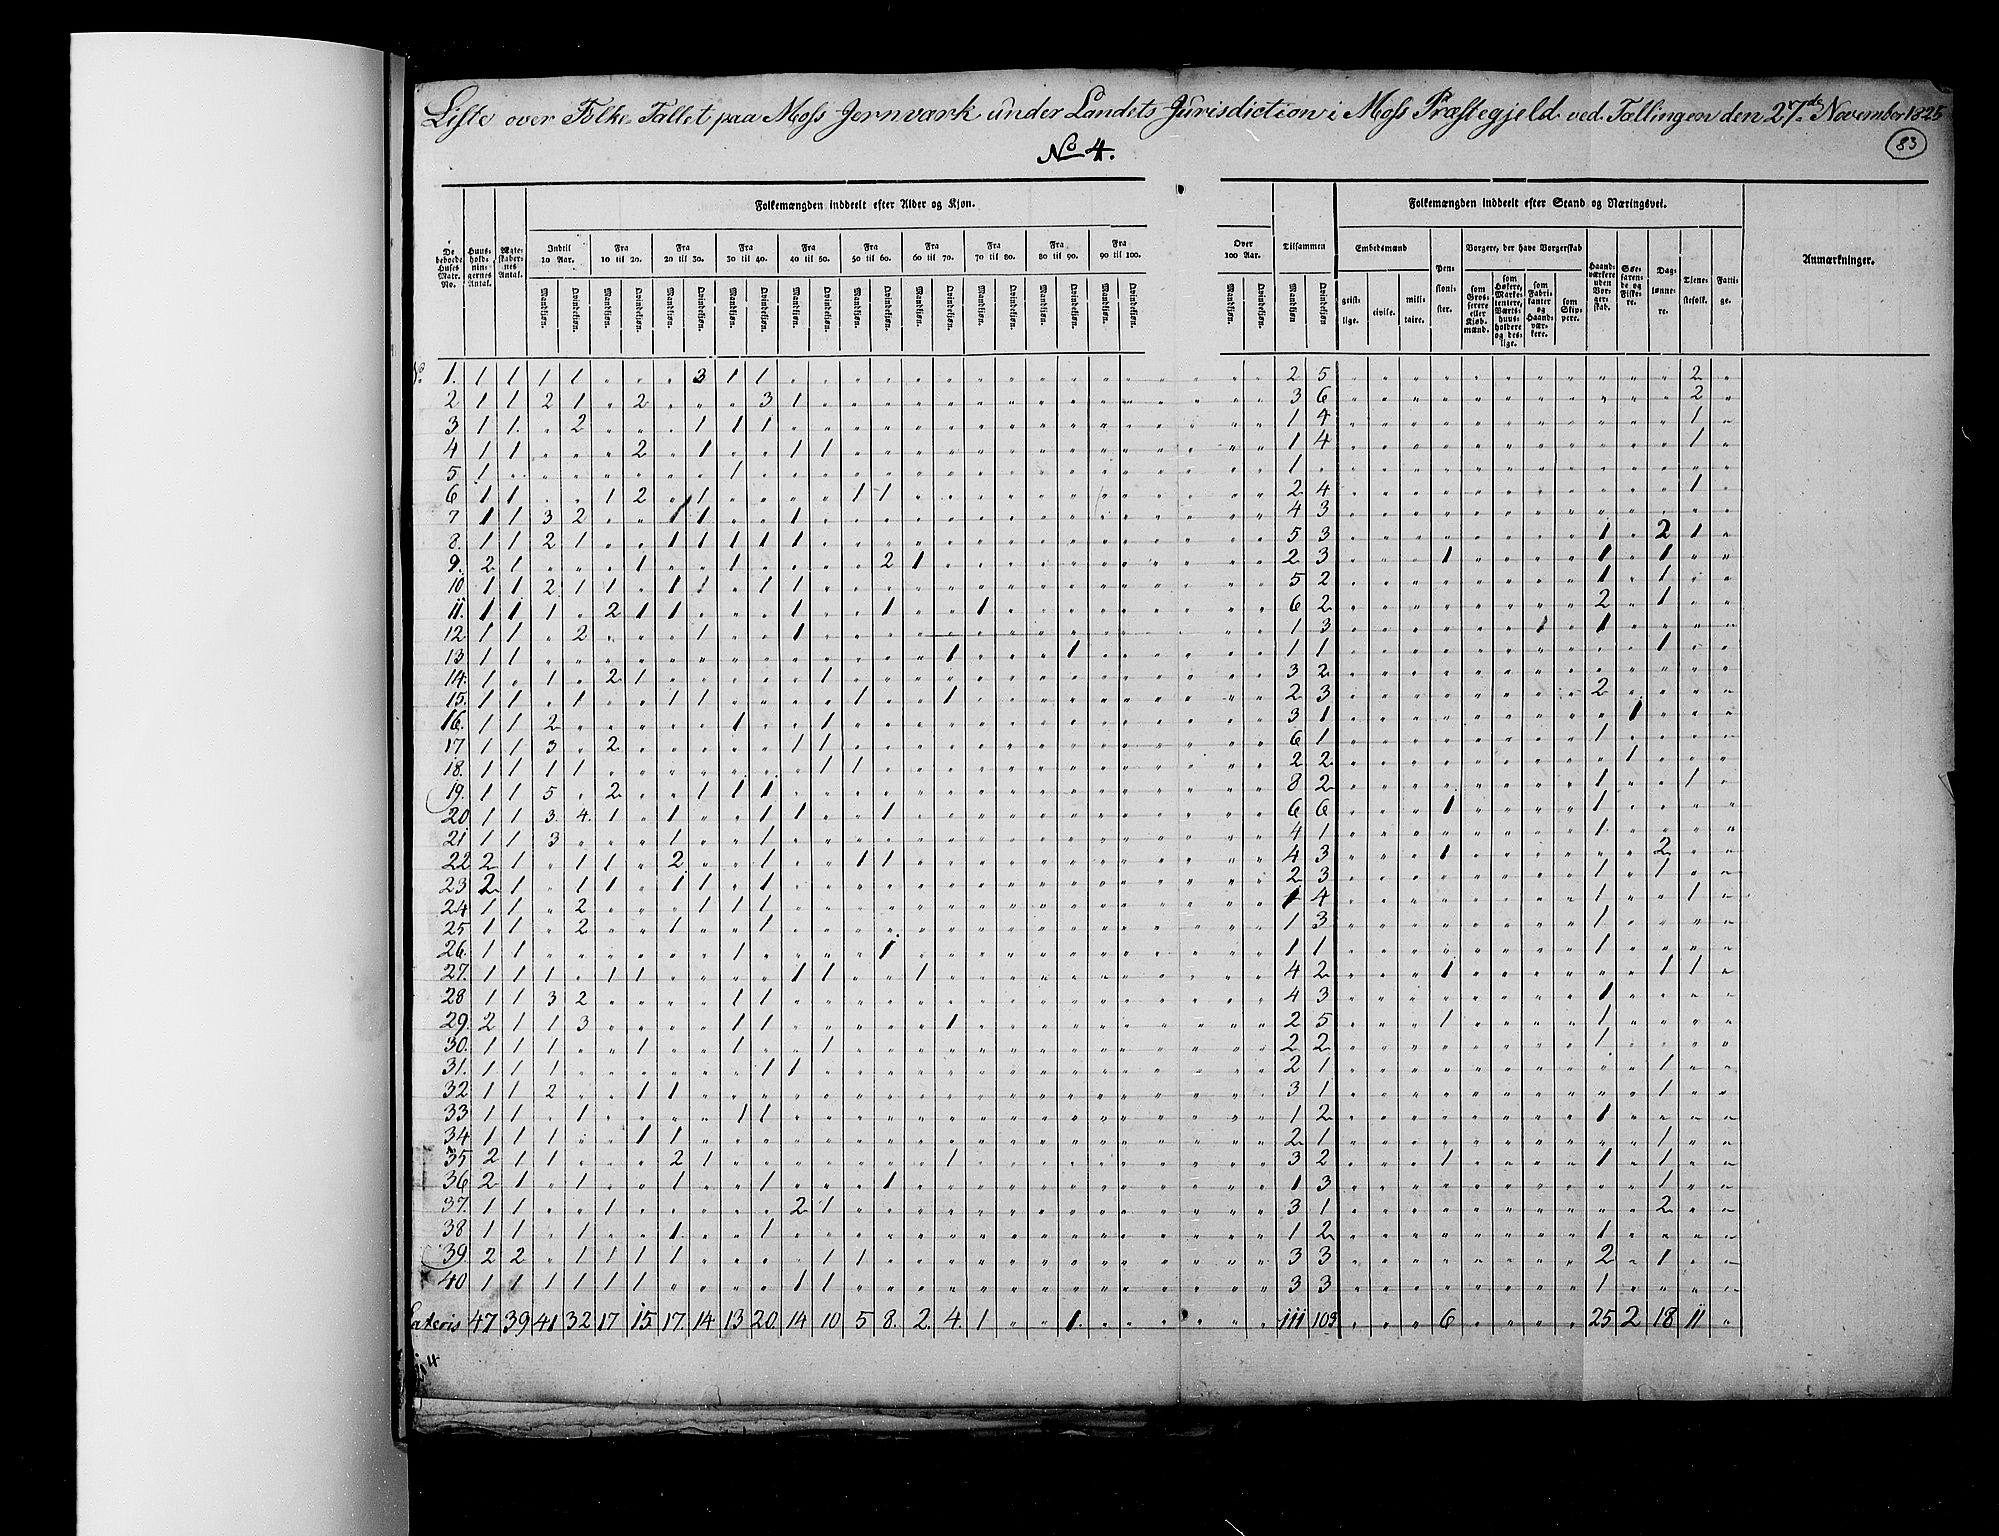 Liste over Folke-Tallet paa Moss Jernværk under Landets Jurisdiction i Moss Præstegjeld ved Tællingen den 27de November 1825
83
No 4.
Folkemængden inddeelt efter Alder og Kjøn.
Folkemængden inddeelt efter Stand og Næringsvei.
De beboede Huses Matr. No.
Huus-hold-nin-gernes Antal.
Ægte-skaber-nes Antal.
Indtil 10 Aar.
Fra 10 til 20.
Fra 20 til 30.
Fra 30 til 40.
Fra 40 til 50.
Fra 50 til 60.
Fra 60 til 70.
Fra 70 til 80.
Fra 80 til 90.
Fra 90 til 100.
Over 100 Aar.
Tilsammen
Embedsmænd
Pen-sioni-ster.
Borgere, der have Borgerskab
Haand-værkere uden Bor-ger-skab.
Søe-faren-de og Fiske-re.
Dag-lønne-re.
Tjene-stefolk.
Fatti-ge.
Anmærkninger.
Mandkjøn. Qvindekjøn. Mandkjøn. Qvindekjøn. Mandkjøn. Qvindekjøn. Mandkjøn. Qvindekjøn. Mandkjøn. Qvindekjøn. Mandkjøn. Qvindekjøn. Mandkjøn. Qvindekjøn. Mandkjøn. Qvindekjøn. Mandkjøn. Qvindekjøn. Mandkjøn. Qvindekjøn. Mandkjøn. Qvindekjøn. Mandkjøn Qvindekjøn
geist-lige.
civile.
mili-taire.
som Gros-serere eller Kjøb-mænd.
som Høkere, Marke-tentere, Værts-huus-holdere og des-lige.
som Fabri-kanter og Haand-vær-kere.
som Skip-pere.
No. 1. 1 1 1 1 3 1 1 2 5 2
2 1 1 2 1 2 3 1 3 6 2
3 1 1 2 1 1 1 1 4 1
4 1 1 2 1 1 1 1 4 1
5 1 1 1
6 1 1 1 2 1 1 1 2 4 1
7 1 1 3 2 1 1 1 4 3
8. 1 1 2 1 1 1 1 1 1 5 3 1 2 1
9. 2 1 1 1 2 1 2 3 1 1 1
10 1 1 2 1 1 1 1 1 1 5 2 1 1
11. 1 1 1 2 1 1 1 1 1 6 2 2 1
12 1 1 2 1 1 1 3 1 1
13 1 1 1 1 1 1 1
14. 1 1 2 1 1 3 2
15. 1 1 1 1 1 1 1 2 3 2
16. 1 1 2 1 1 3 1 1
17 1 1 3 2 1 1 6 1 1
18. 1 1 1 1 1 1 2 2 1
19. 1 1 5 2 1 1 1 8 2 1 1
20 1 1 3 4 1 1 1 1 1 6 6 1 1
21 1 1 3 1 1 4 1 1
22 2 1 1 1 2 1 1 1 4 3 1 2
23 2 1 1 1 1 1 1 2 3 1 1
24 1 1 2 1 1 1 1 4 1 1
25 1 1 2 1 1 1 3 1
26. 1 1 1 1 1 1 1
27. 1 1 1 1 1 1 1 1 4 2 1 1 1
28 1 1 3 2 1 1 4 3 1
29. 2 1 1 3 1 1 1 2 5 1 1
30. 1 1 1 1 1 1 2 2 1
31. 1 1 1 1 1 2 1 1
32 1 1 2 1 1 3 1 1
33 1 1 1 1 1 1 2 1
34 1 1 1 1 1 2 1 1
35 2 1 1 2 1 1 3 2 1 1 1
36 2 1 1 1 1 1 1 3 1
37. 1 1 1 2 1 3 1 2
38 1 1 1 1 1 1 2 1
39. 2 2 1 1 1 1 1 1 3 3 2 1
40 1 1 1 1 1 1 1 1 3 3 1
Lateris 47 39 41 32 17 15 17 14 13 20 14 10 5 8 2 4 1 1 111 103 6 25 2 18 11